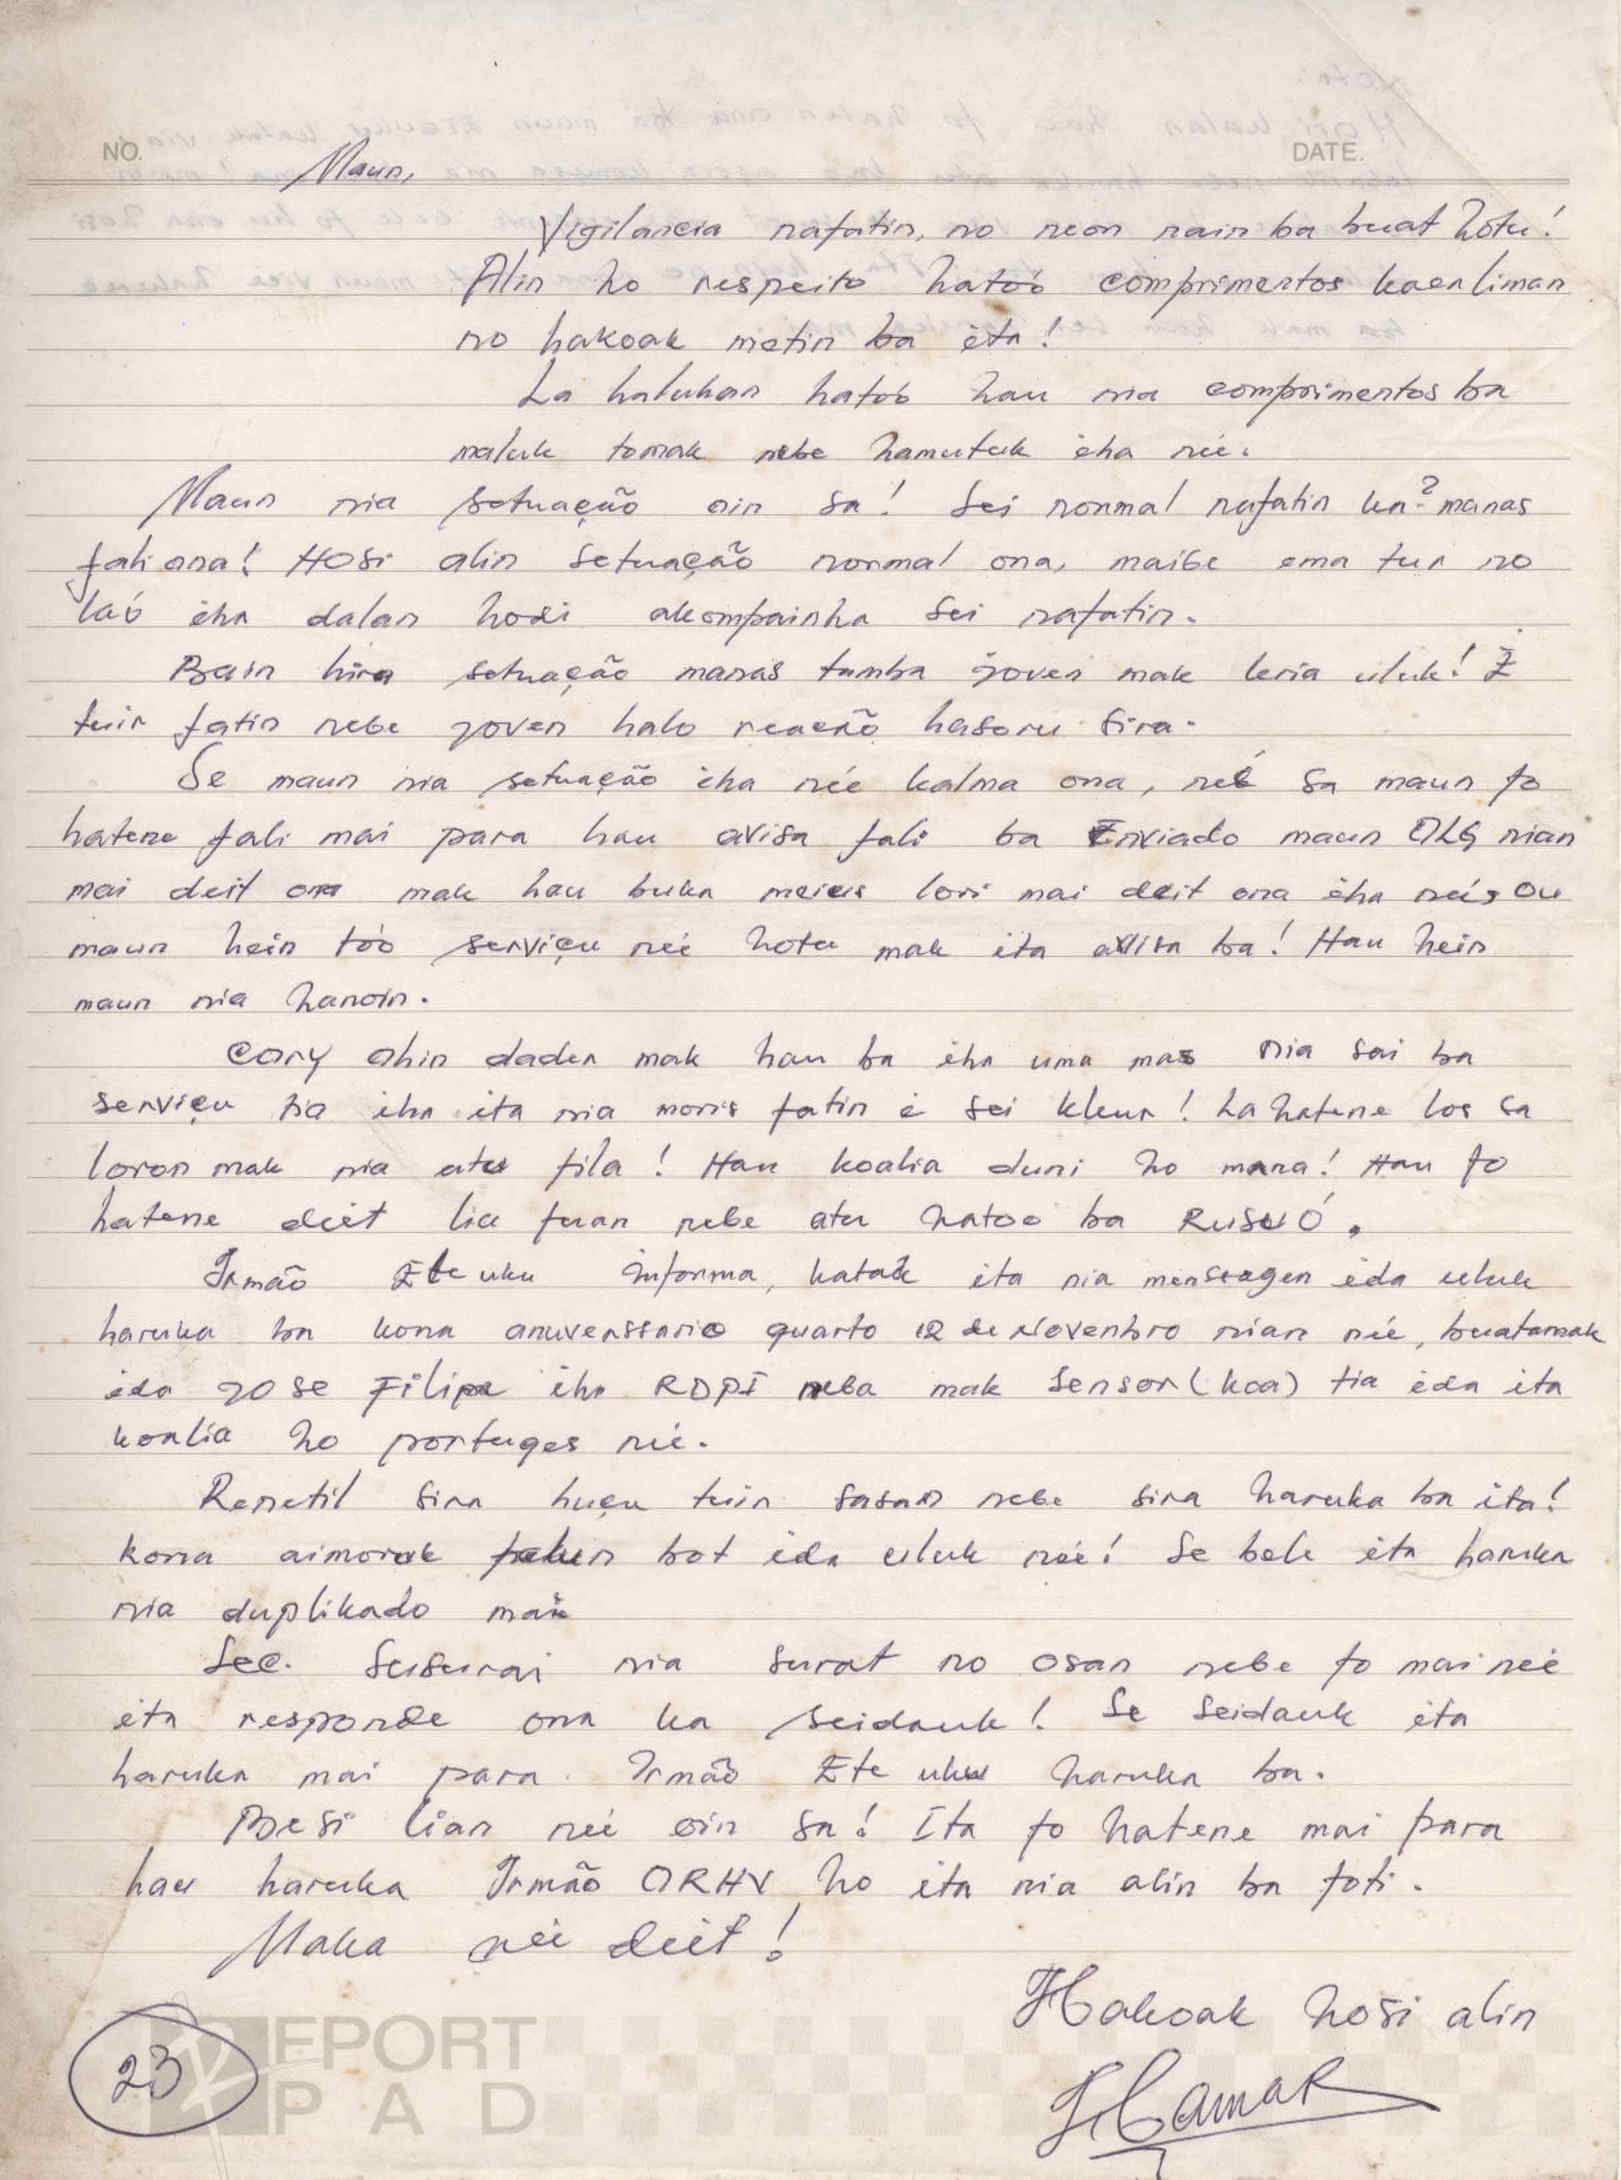 NO. DATE.
Maun,
Vigilancia nafatin, no neon nain ba buat hotu!
Alin ho respeito ható'o comprimentos kaer liman
no hakoak metin ba ita!
La haluhan ható'o hau nia comprimentos ba
maluk tomak nebe hamutuk iha né'e.
Maun nia setuação oin sa! Sei normal nafatin ka? manas
fali ona! Hosi alin setuação normal ona, maibe ema tur no
la'ó iha dalan hodi akompainha sei nafatin.
Bain hira setuação manas tamba joven mak leria uluk! I
tuir fatin nebe joven halo reacão hasoru sira.
Se maun nia setuação iha né'e kalma ona, né'é sa maun fo
hatene fali mai para hau avisa fali ba Enviado maun OLG nian
mai deit ona mak hau buka meius lori mai deit ona iha né'e, ou
maun hein tó'o serviçu né'e hotu mak ita avisa ba! Hau hein
maun nia hanoin.
Cory ohin dader mak hau ba iha uma mas nia sai ba
serviçu tia iha ita nia moris fatin é sei kleur! La hatene los sa
loron mak nia atu fila! Hau koalia duni ho mana! Hau fo
hatene deit lia fuan nebe atu hatoo ba RUSUÓ.
Irmão Ete uku informa, katak ita nia menseagen ida uluk
haruka ba kona anuverssario quarto 12 de Novenbro nian né'e, buatamak
ida Jose Filipe iha RDPI neba mak sensor (koa) tia ida ita
koalia ho portuges né'e.
Renetil sira huçu tuir sasan nebe sira haruka ba ita!
kona aimoruk fahen bot ida uluk né'e! Se bele ita haruka
nia duplikado mai
Sec. Susurai nia surat no osan nebe fo mai né'e
ita responde ona ka seidauk! Se seidauk ita
haruka mai para Irmão Ete uku haruka ba.
Besi lian né'e oin sa! Ita fo hatene mai para
hau haruka Irmão ORHY ho ita nia alin ba foti.
Maka né'e deit!
Hakoak hosi alin
Hamar
23
REPORT
PAD